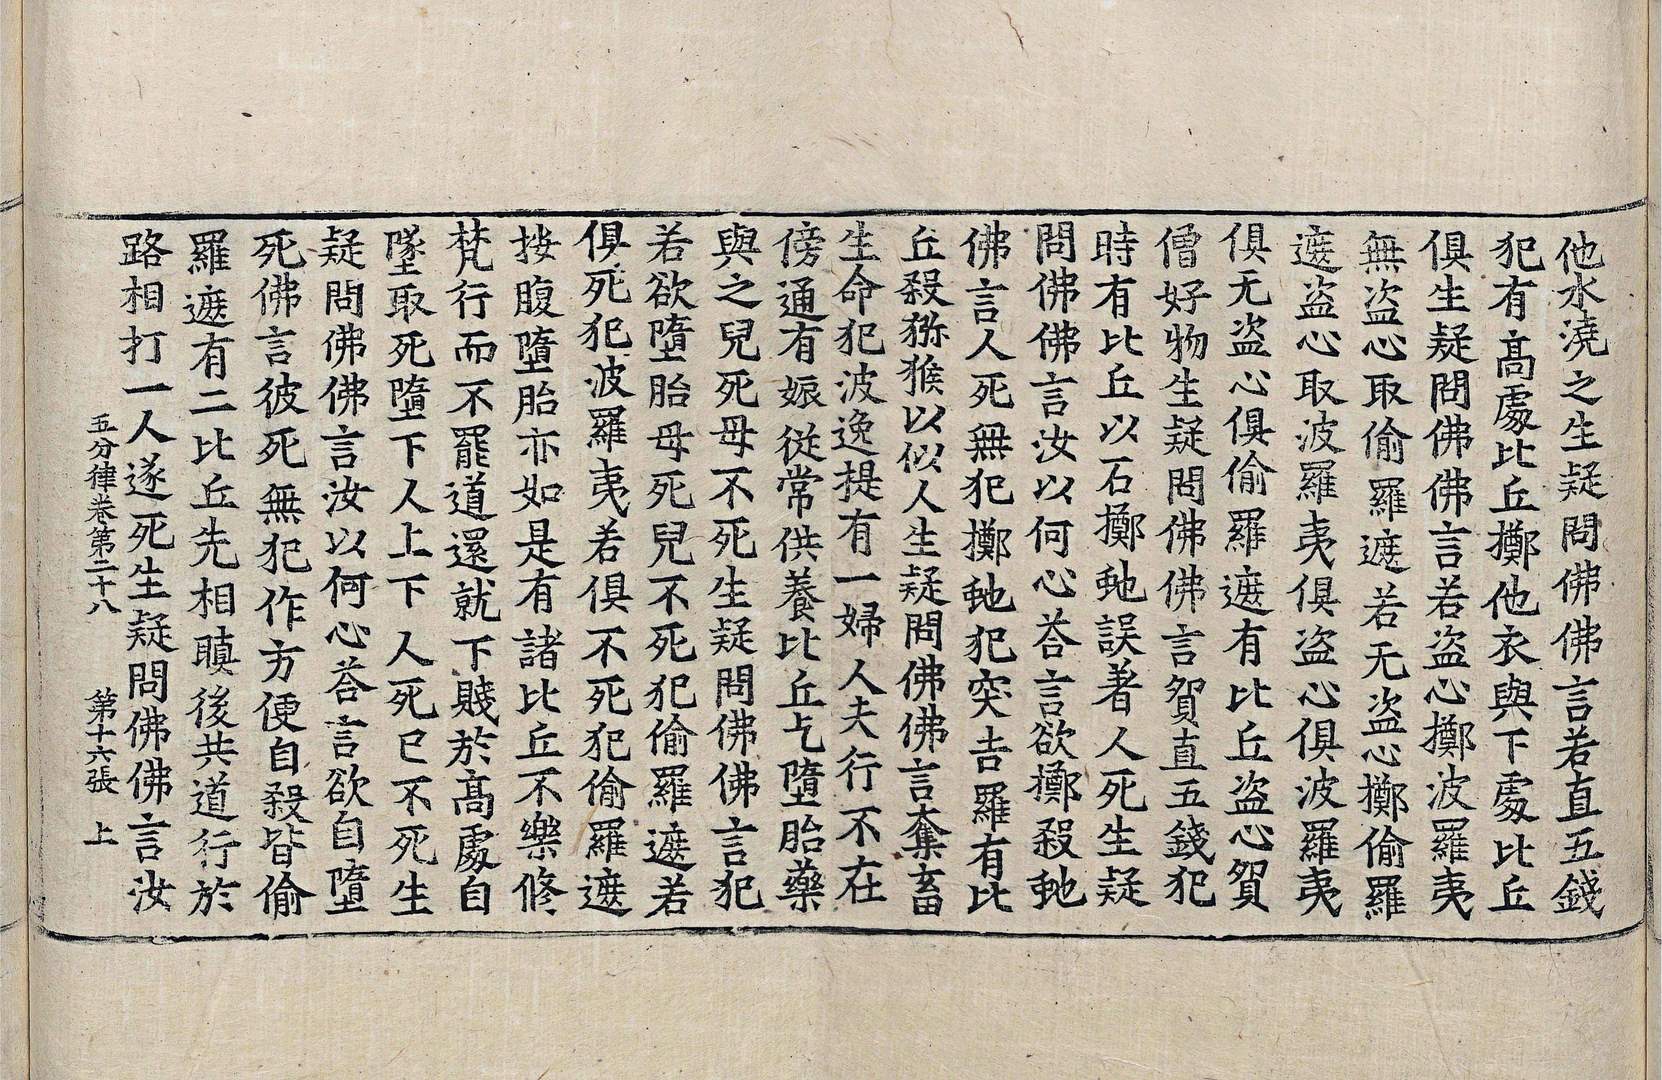 他水澆之生疑問佛佛言若直五錢
犯有髙處比丘擲他衣與下處比丘
俱生疑問佛佛言若盜心擲波羅夷
無盜心取偷羅遮若无盜心擲偷羅
遮盜心取波羅夷俱盜心俱波羅夷
俱无盜心俱偷羅遮有比丘盜心貿
僧好物生疑問佛佛言貿直五錢犯
時有比丘以石擲虵誤著人死生疑
問佛佛言汝以何心荅言欲擲殺虵
佛言人死無犯擲虵犯突吉羅有比
丘殺狝猴以似人生疑問佛佛言奪畜
生命犯波逸提有一婦人夫行不在
傍通有娠從常供養比丘乞墮胎藥
與之兒死母不死生疑問佛佛言犯
若欲墮胎母死兒不死犯偷羅遮若
俱死犯波羅夷若俱不死犯偷羅遮
按腹墮胎亦如是有諸比丘不樂修
梵行而不罷道還就下賤於髙處自
墜取死墮下人上下人死已不死生
疑問佛佛言汝以何心荅言欲自墮
死佛言彼死無犯作方便自殺皆偷
羅遮有二比丘先相瞋後共道行於
路相打一人遂死生疑問佛佛言汝
五分律卷第二十八　第十六張　上